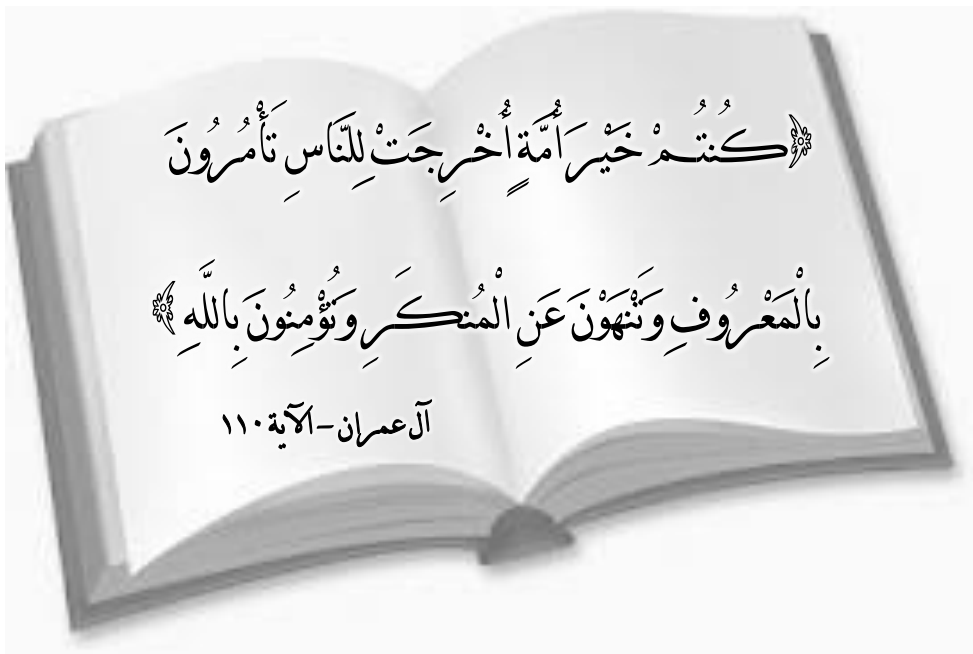 ﴿كُنتُمْ خَيْرَ أُمَّةٍ أُخْرِجَتْ لِلنَّاسِ تَأْمُرُونَ
بِالْمَعْرُوفِ وَتَنْهَوْنَ عَنِ الْمُنكَرِ وَتُؤْمِنُونَ بِاللَّهِ﴾
آل عمران - الآية ١١٠